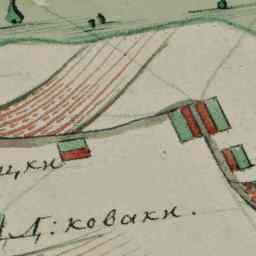 цки
Д: коваки.